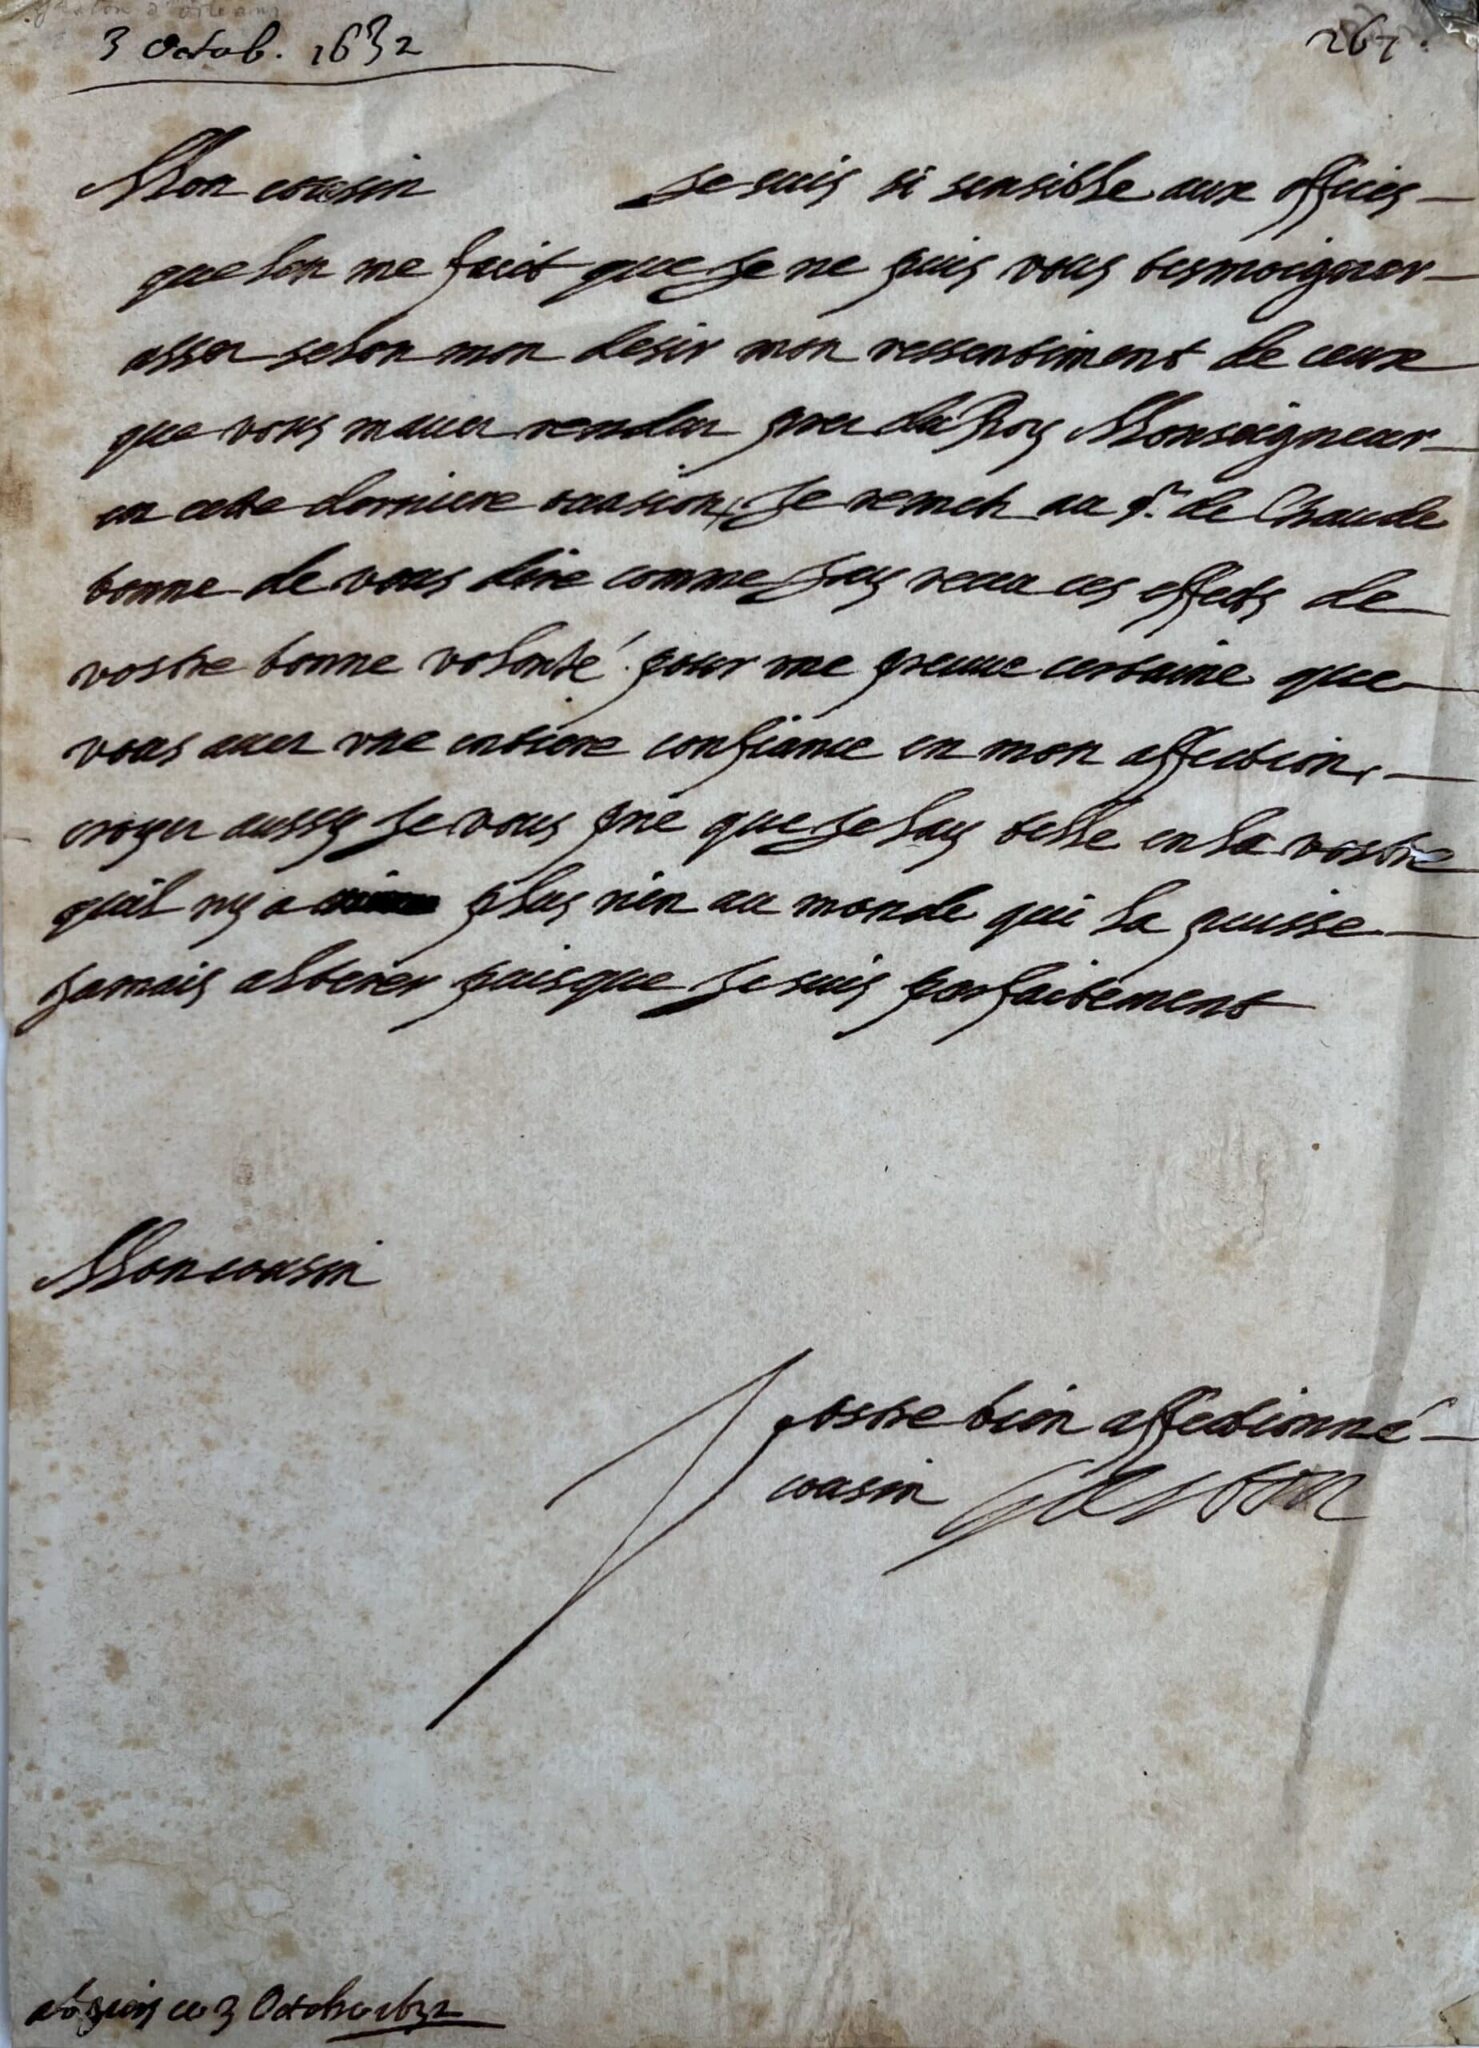 Gaston d'Orleans
3 Octob. 1632
267.
Mon cousin Je suis si sensible aux offices
que lon me faict que Je ne puis vous tesmoigner
assez selon mon desir mon ressentiment de ceux
que vous mauez rendus pres du Roy Monseigneur
en cette derniere occasion, Je remets au Sr. de Chaude
bonne de vous dire comme Jay receu ces effects de
vostre bonne volonté pour une preuue certaine que
vous auez vne entiere confiance en mon affection,
croyez aussy Je vous prie que Je lay telle en la vostre
quil ny a plus rien au monde qui la puisse
Jamais alterer puisque Je suis parfaitement
Mon cousin
Vostre bien affectionné
cousin Gaston
ce 3 Octobre 1632